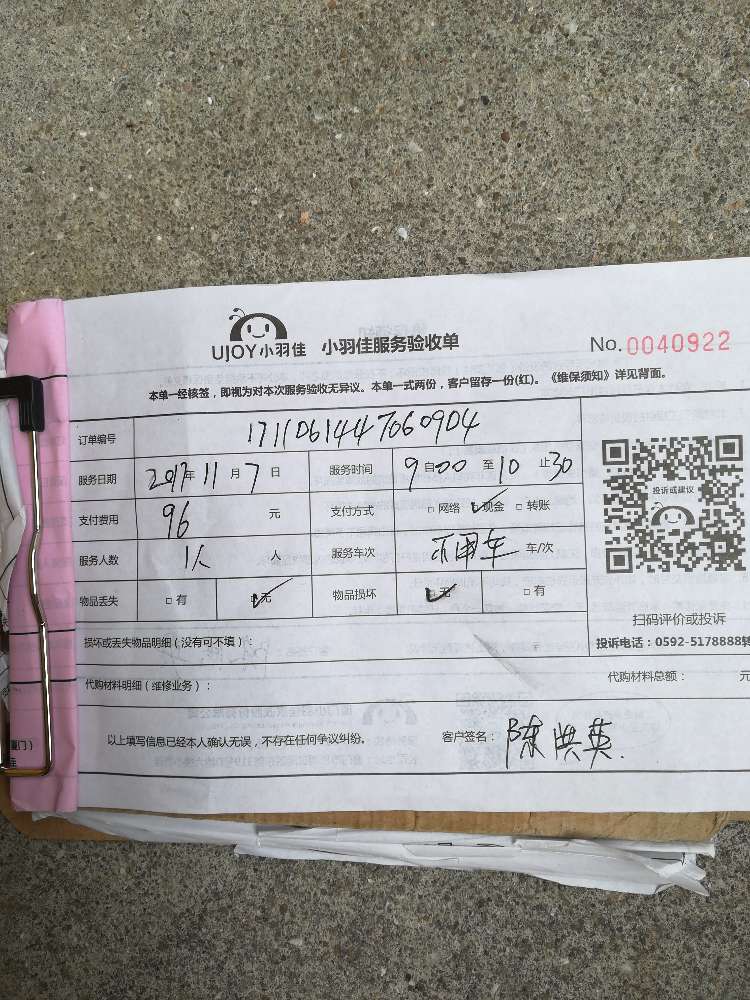 UJOY小羽佳 小羽佳服务验收单 No.0040922
本单一经核签，即视为对本次服务验收无异议。本单一式两份，客户留存一份(红)。《维保须知》详见背面。
订单编号 1711061447060904
服务日期 2017年11月7日 服务时间 9自00至10止30
支付费用 96 元 支付方式 □网络 ☑现金 □转账
服务人数 1人 人 服务车次 不用车 车/次
物品丢失 □有 ☑无 物品损坏 ☑无 □有
投诉或建议
扫码评价或投诉
投诉电话：0592-5178888转
损坏或丢失物品明细(没有可不填)：
代购材料明细(维修业务)： 代购材料总额： 元
以上填写信息已经本人确认无误，不存在任何争议纠纷。 客户签名：陈洪英